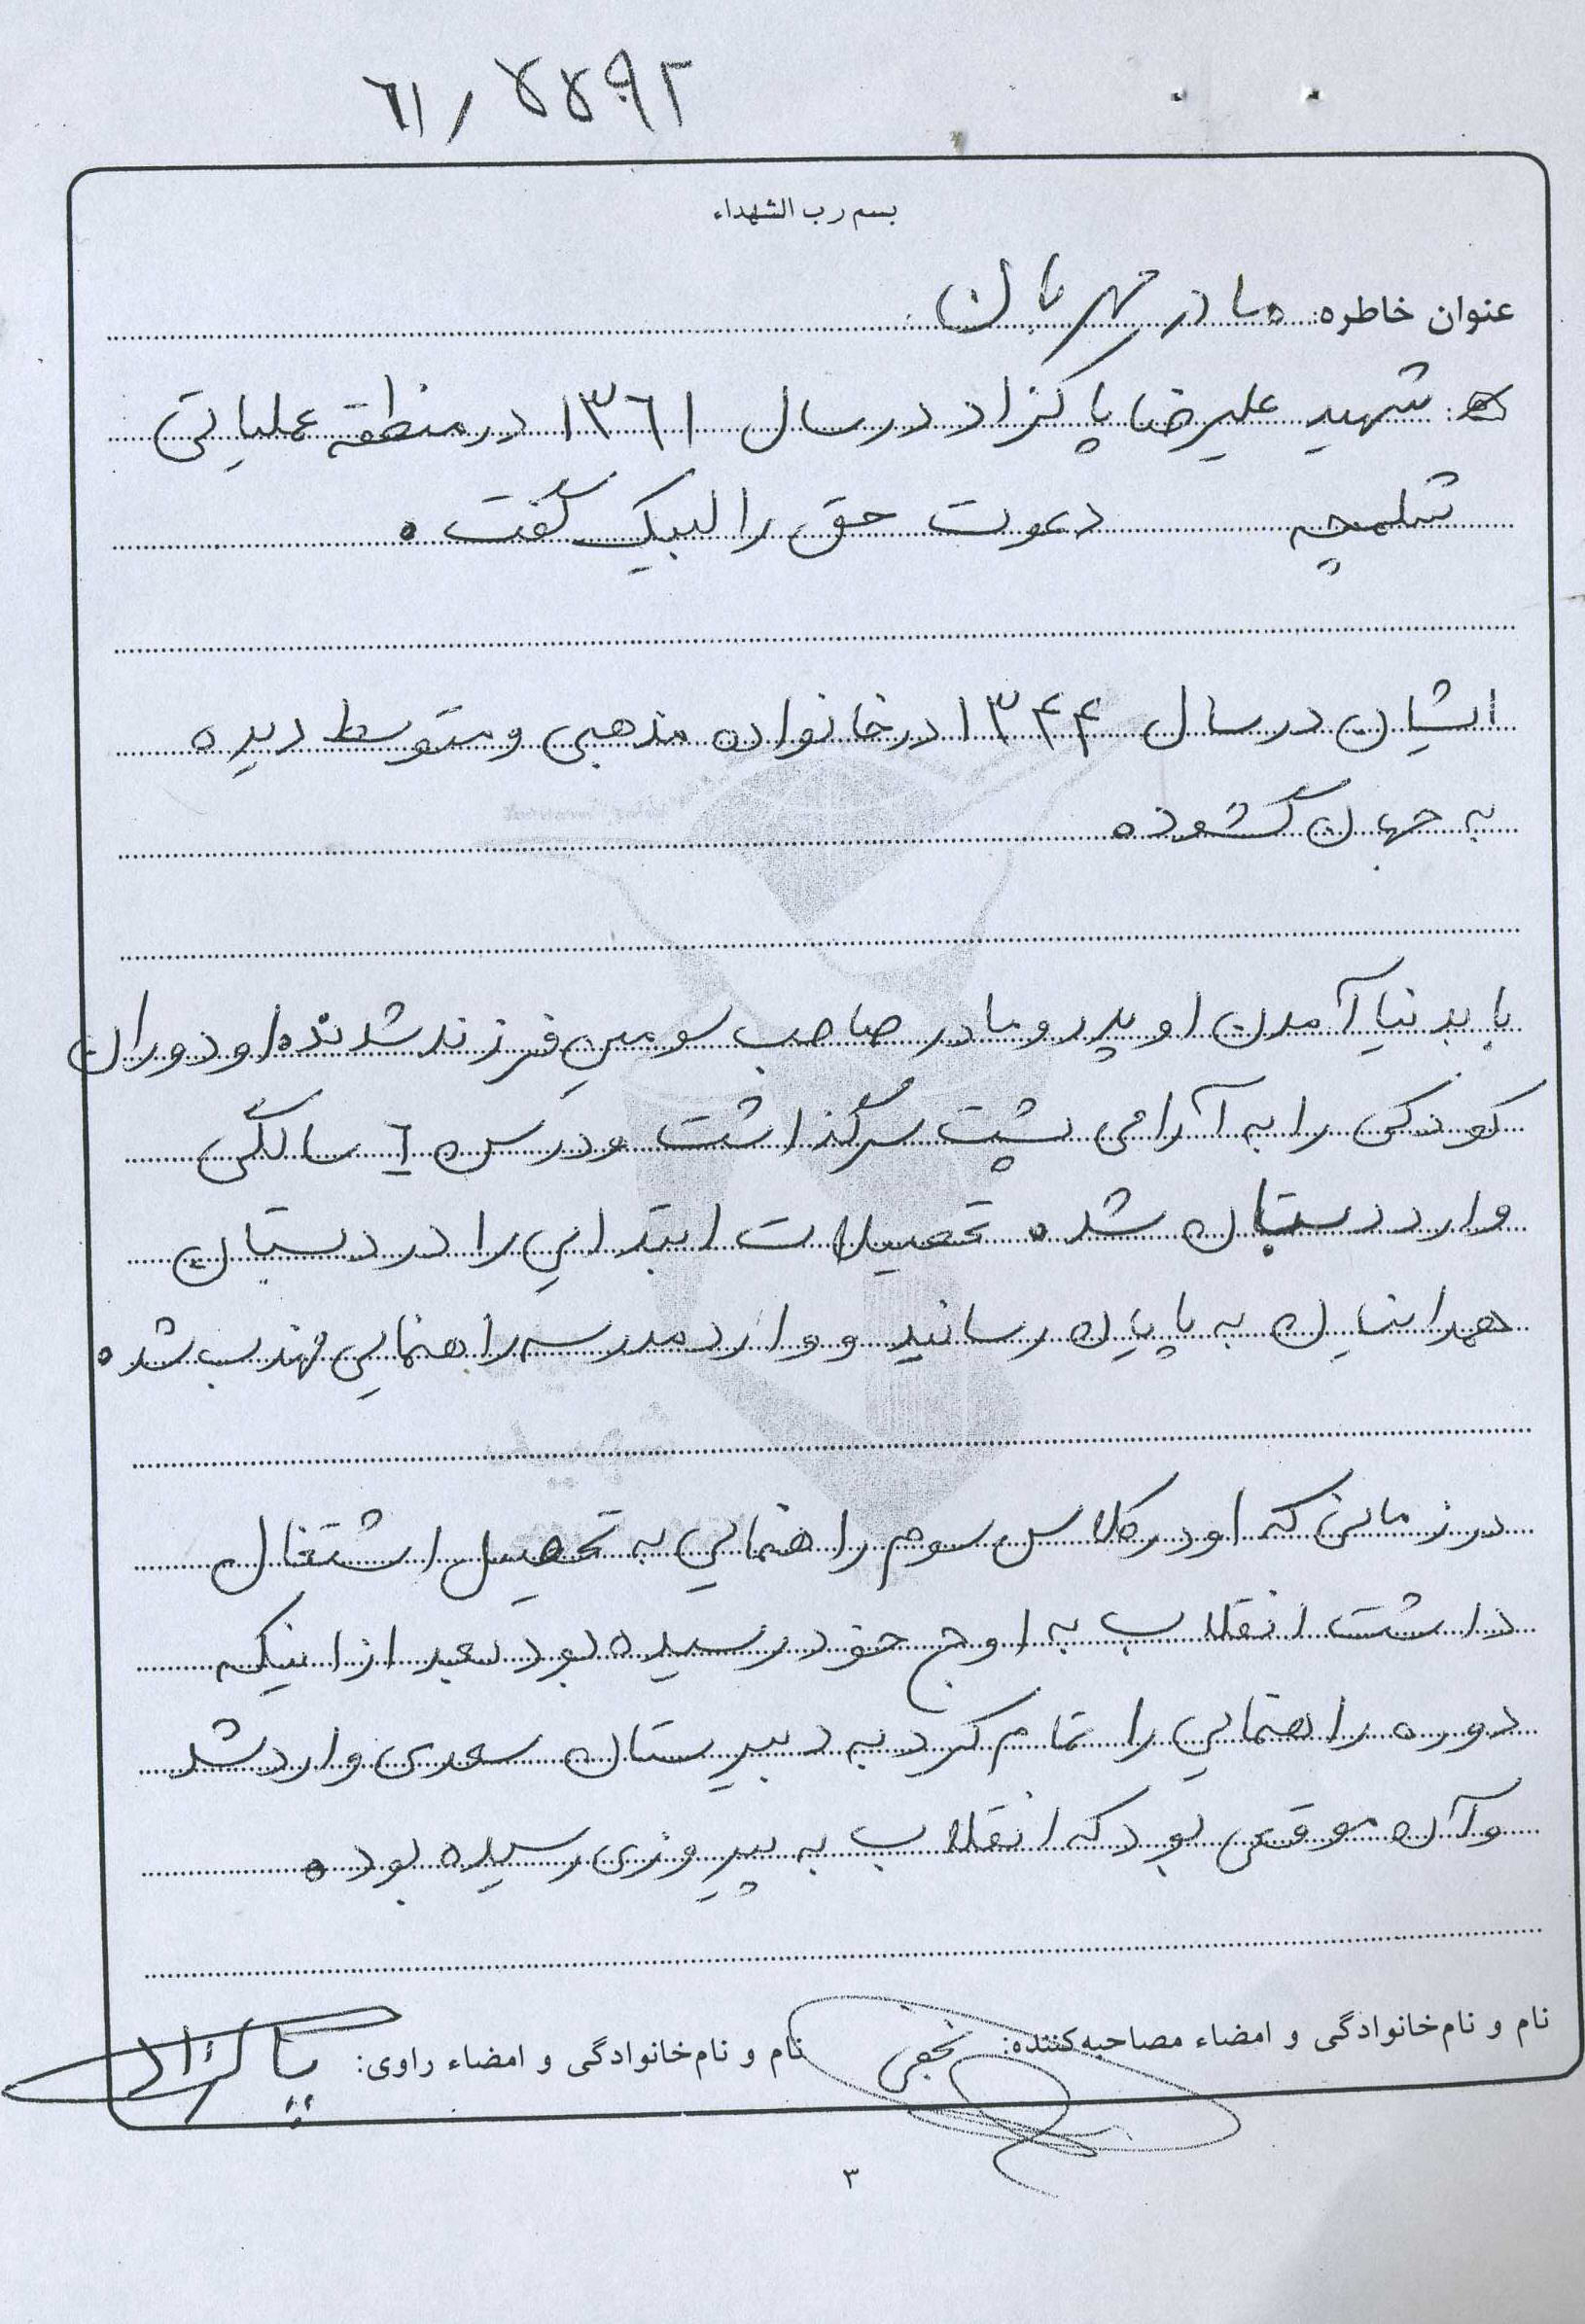 ۶۱/۵۵۹۲
بسم رب الشهداء
عنوان خاطره: مادر مهربان
شهید علیرضا پاکزاد در سال ۱۳۶۱ در منطقه عملیاتی
شلمچه دعوت حق را لبیک گفت.
ایشان در سال ۱۳۴۴ در خانواده مذهبی و متوسط دیده
به جهان گشوده
با بدنیا آمدن او پدر و مادر صاحب سومین فرزند شدند. او دوران
کودکی را به آرامی پشت سر گذاشت و در سن ۶ سالگی
وارد دبستان شد. تحصیلات ابتدایی را در دبستان
همدانیان به پایان رسانید و وارد مدرسه راهنمایی مهذب شد.
در زمانی که او در کلاس سوم راهنمایی به تحصیل اشتغال
داشت انقلاب به اوج خود رسیده بود بعد از اینکه
دوره راهنمایی را تمام کرد به دبیرستان سعدی وارد شد
و آن موقعی بود که انقلاب به پیروزی رسیده بود.
نام و نام‌خانوادگی و امضاء مصاحبه‌کننده: نجفی نام و نام‌خانوادگی و امضاء راوی: پاکزاد
۳